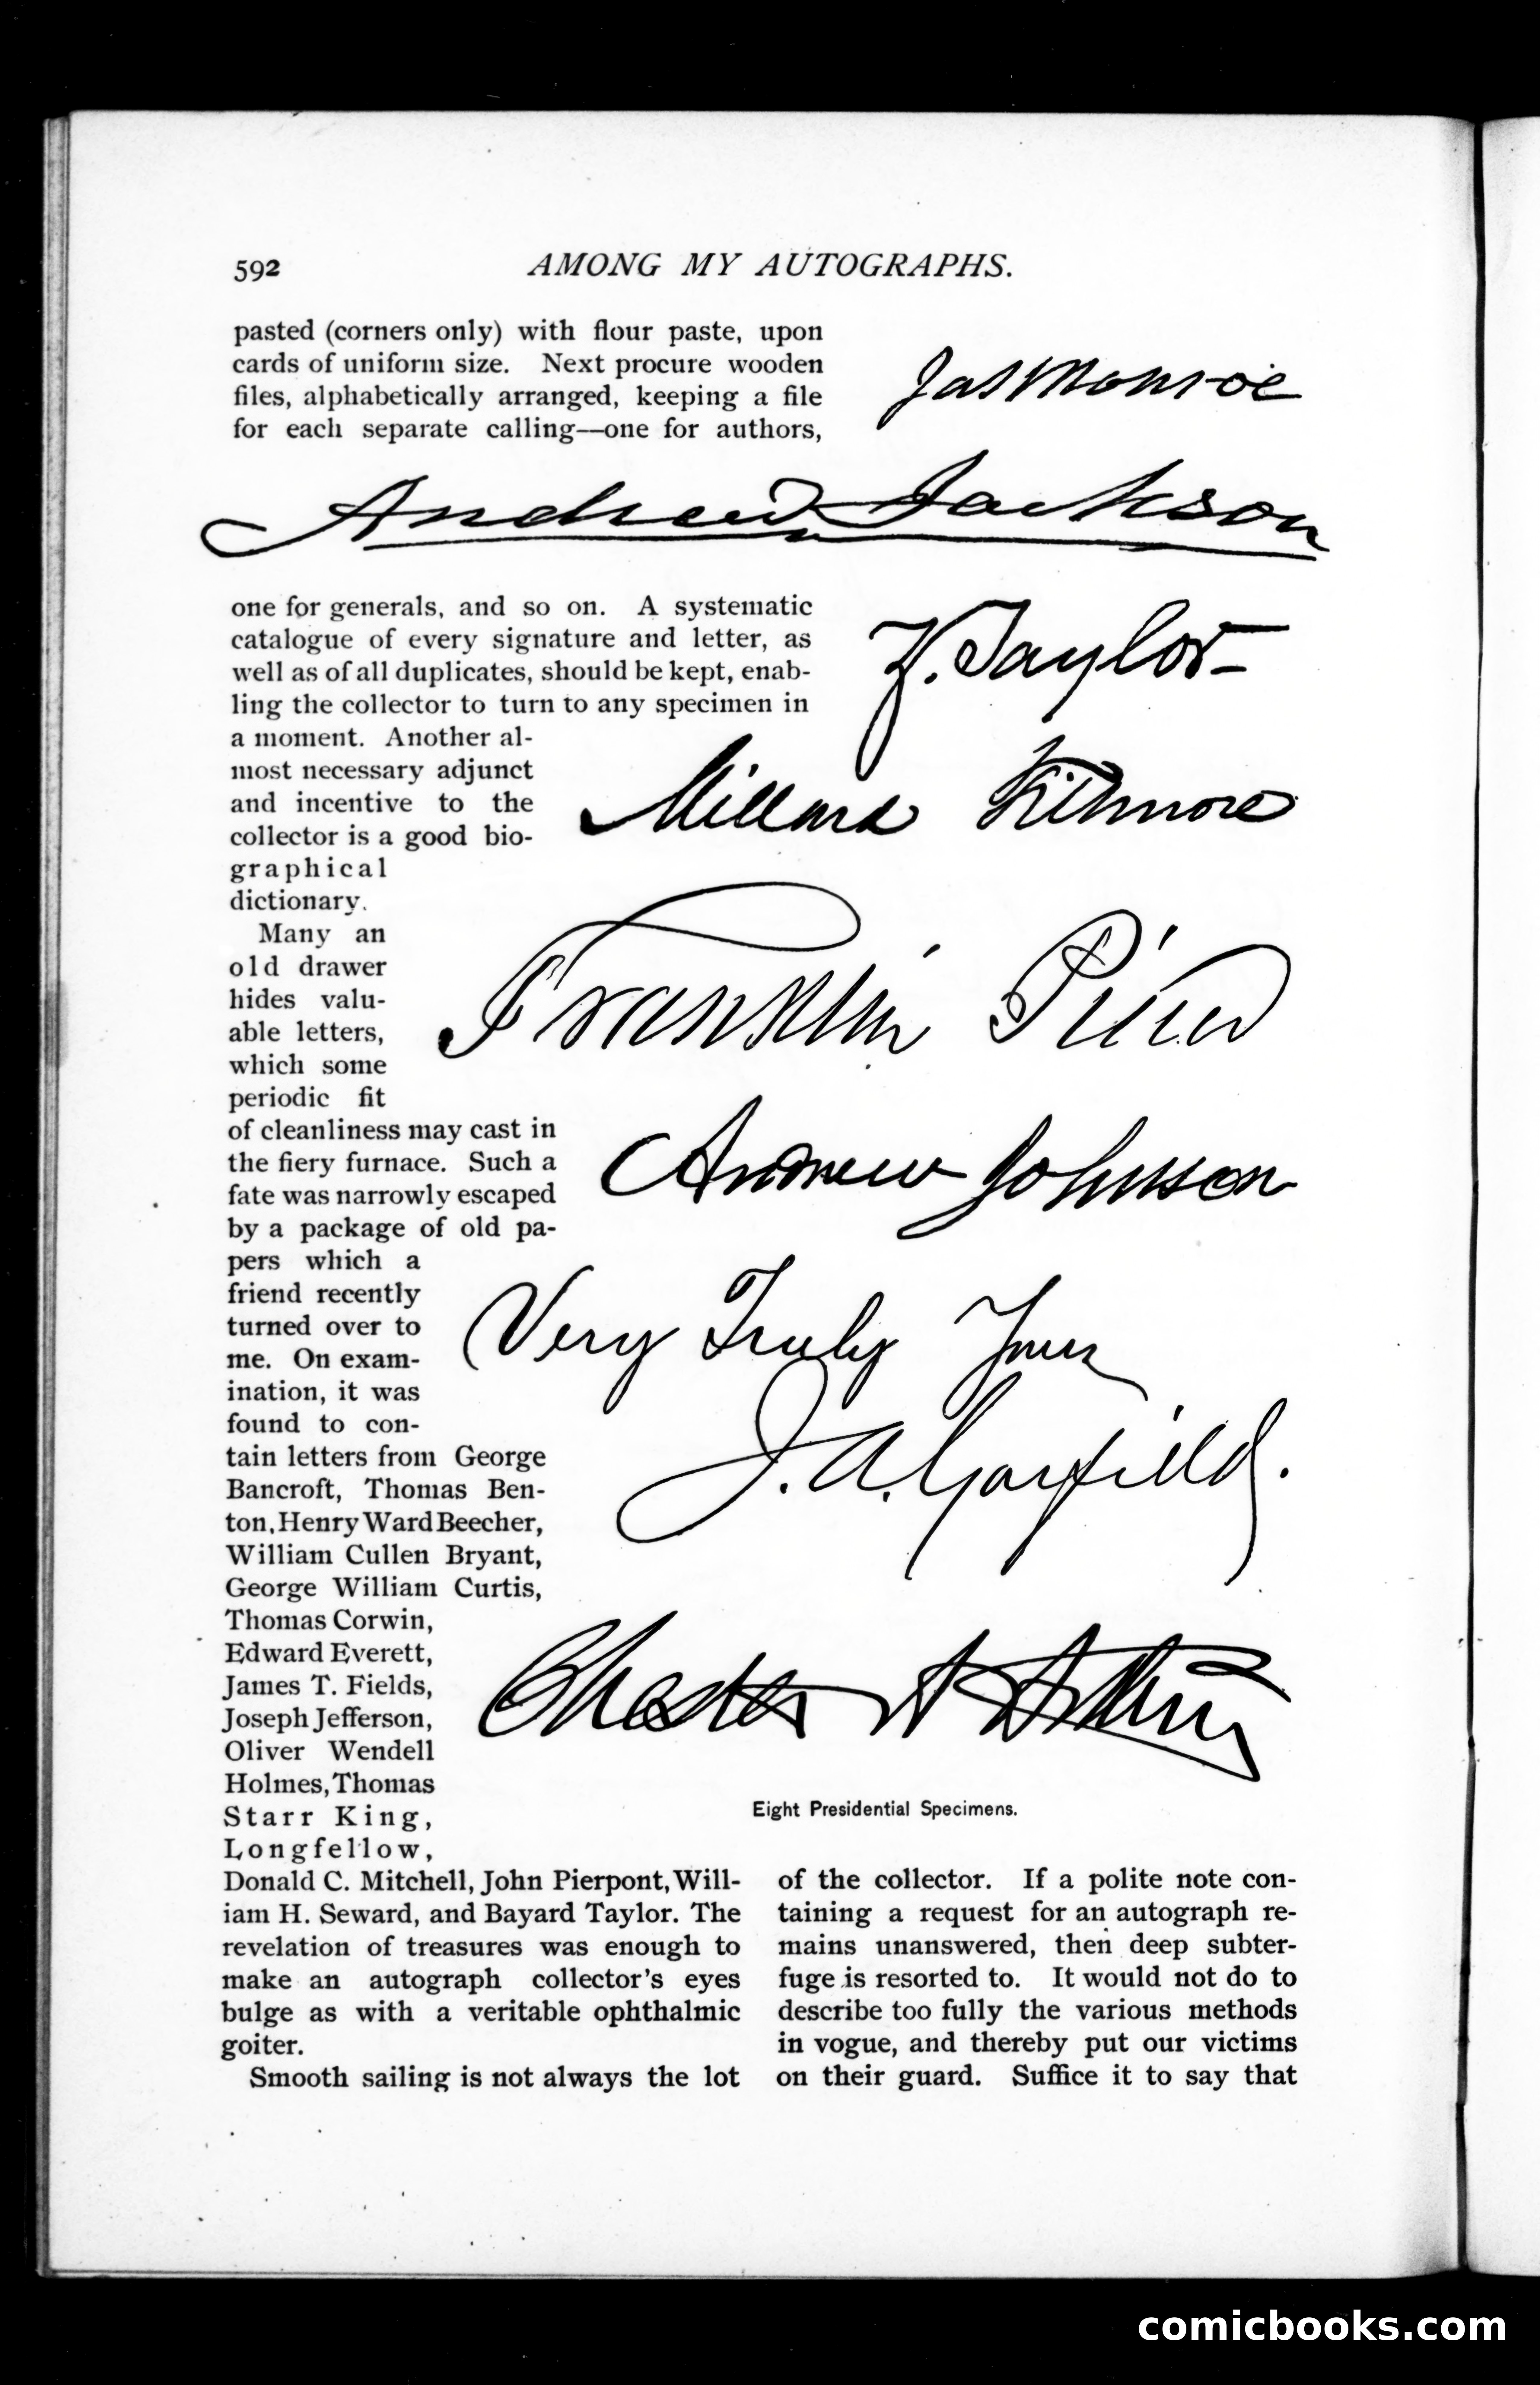 592
AMONG MY AUTOGRAPHS.
pasted (corners only) with flour paste, upon
cards of uniform size. Next procure wooden
files, alphabetically arranged, keeping a file
for each separate calling—one for authors,
Jas Monroe
Andrew Jackson
one for generals, and so on. A systematic
catalogue of every signature and letter, as
well as of all duplicates, should be kept, enab-
ling the collector to turn to any specimen in
a moment. Another al-
most necessary adjunct
and incentive to the
collector is a good bio-
graphical
dictionary.
Z. Taylor
Millard Fillmore
Many an
old drawer
hides valu-
able letters,
which some
periodic fit
of cleanliness may cast in
the fiery furnace. Such a
fate was narrowly escaped
by a package of old pa-
pers which a
friend recently
turned over to
me. On exam-
ination, it was
found to con-
tain letters from George
Bancroft, Thomas Ben-
ton, Henry Ward Beecher,
William Cullen Bryant,
George William Curtis,
Thomas Corwin,
Edward Everett,
James T. Fields,
Joseph Jefferson,
Oliver Wendell
Holmes, Thomas
Starr King,
Longfellow,
Franklin Pierce
Andrew Johnson
Very Truly Yours
J. A. Garfield.
Chester A Arthur
Eight Presidential Specimens.
Donald C. Mitchell, John Pierpont, Will-
iam H. Seward, and Bayard Taylor. The
revelation of treasures was enough to
make an autograph collector's eyes
bulge as with a veritable ophthalmic
goiter.
Smooth sailing is not always the lot
of the collector. If a polite note con-
taining a request for an autograph re-
mains unanswered, then deep subter-
fuge is resorted to. It would not do to
describe too fully the various methods
in vogue, and thereby put our victims
on their guard. Suffice it to say that
comicbooks.com